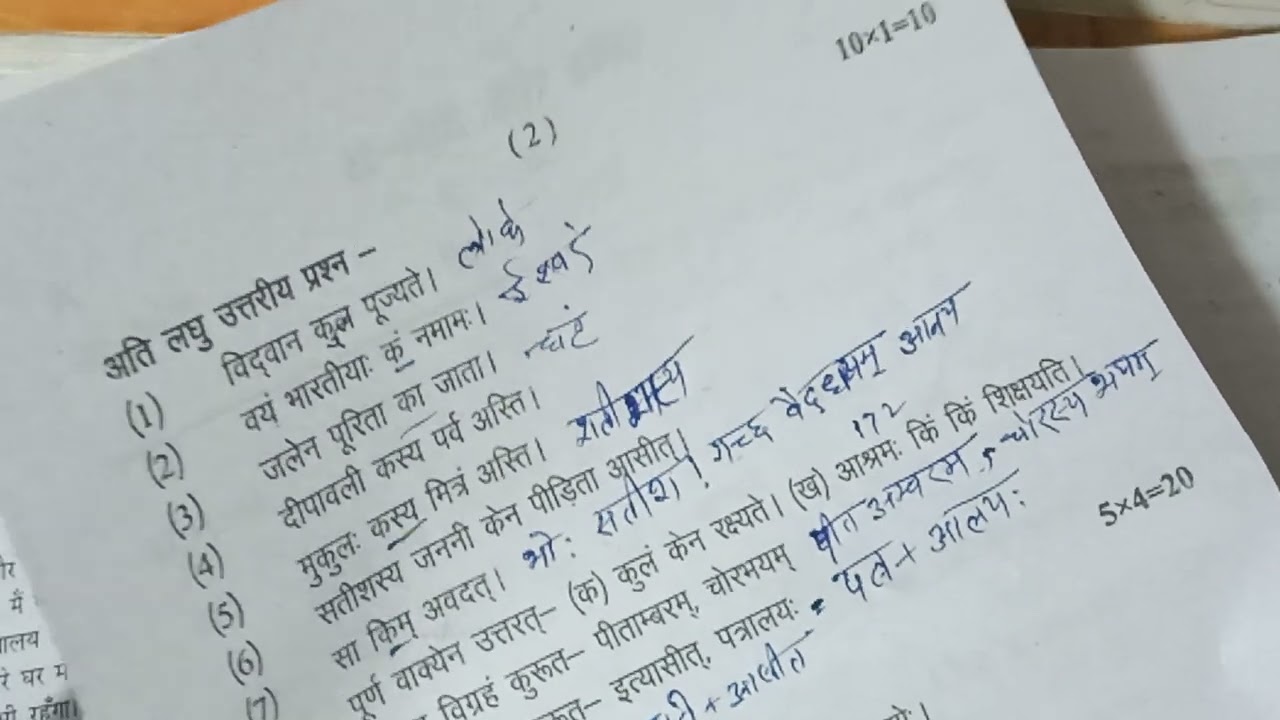 10×1=10
(2)
अति लघु उत्तरीय प्रश्न –
(1) विद्वान कुत्र पूज्यते। लोके
(2) वयं भारतीयाः कं नमामः। ईश्वरं
(3) जलेन पूरिता का जाता। घटं
(4) दीपावली कस्य पर्व अस्ति।
(5) मुकुलः कस्य मित्रं अस्ति।
(6) सतीशस्य जननी केन पीड़िता आसीत्।
(7) सा किम् अवदत्। भोः सतीश! गच्छ वैद्यम् आनय
पूर्ण वाक्येन उत्तरत्– (क) कुलं केन रक्ष्यते। (ख) आश्रमः किं किं शिक्षयति।
विग्रहं कुरूत– पीताम्बरम्, चोरभयम् पीत अम्बरम्, चोरस्य भयम्
इत्यासीत्, पत्रालयः पत्र + आलयः
+ आसीत
5×4=20
में
रे घर में
रहूँगा।